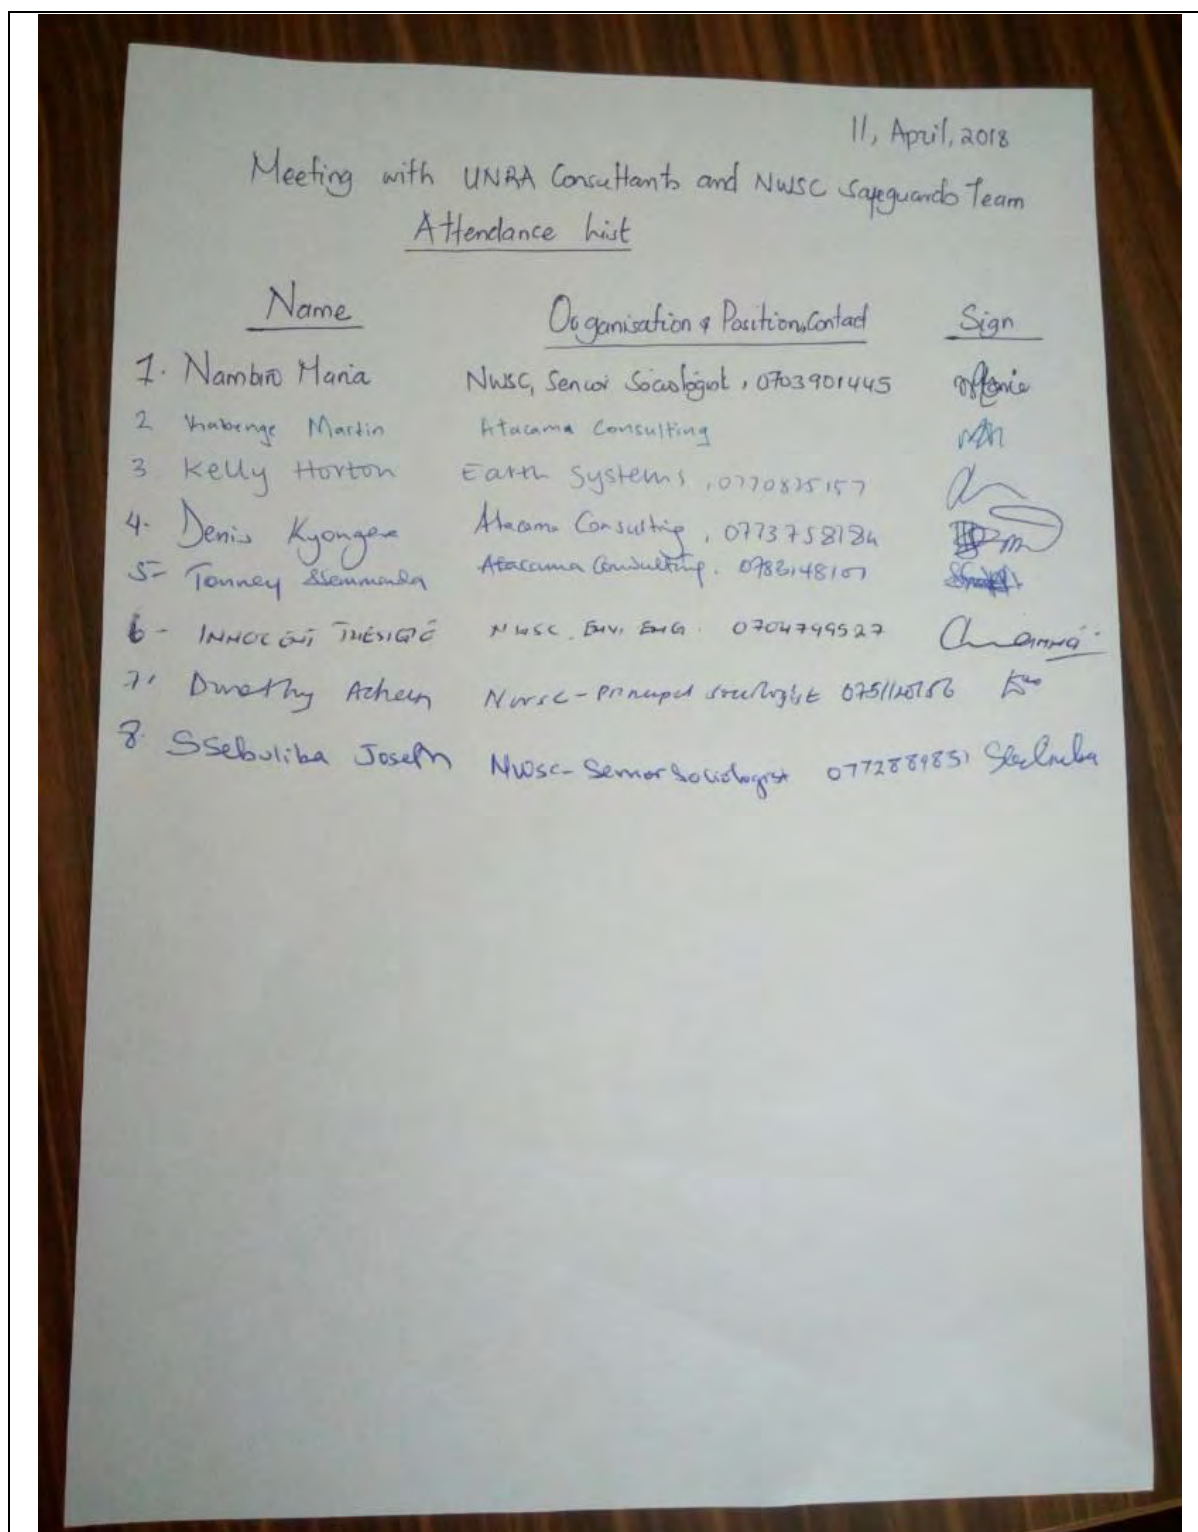 11, April, 2018
Meeting with UNRA Consultants and NWSC Safeguards Team
Attendance List
Name Organisation & Position, Contact Sign
1. Nambiro Maria NWSC, Senior Sociologist, 0703901445
2 Kabenge Martin Atacama Consulting
3 Kelly Horton Earth Systems, 0770835157
4. Denis Kyongera Atacama Consulting, 0773758184
5- Tonney Atacama Consulting.
6- INNOCENT NWSC. ENV. ENG. 0704799527
7. Dorothy NWSC-Principal Sociologist
8. Ssebuliba Joseph NWSC-Senior Sociologist